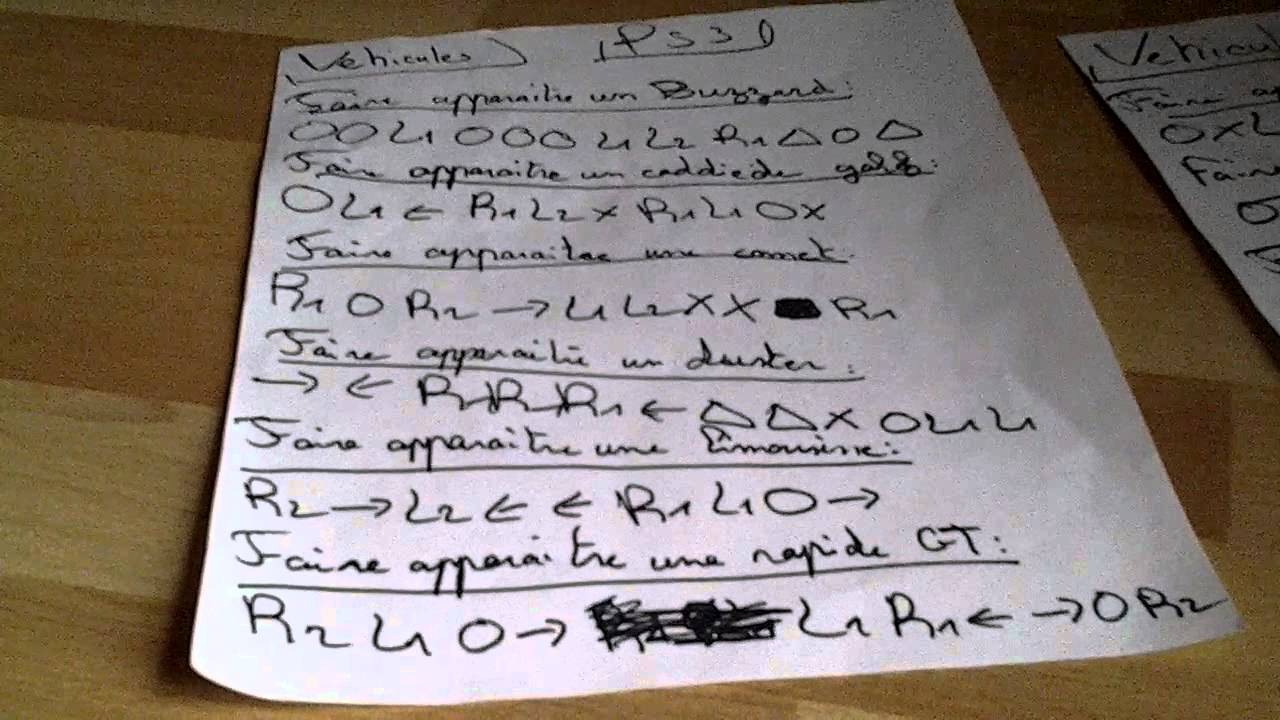 Véhicules PS3
Faire apparaitre un Buzzard:
O O L1 O O O L1 L2 R1 △ O △
Faire apparaitre un caddie de golf:
O L1 ← R1 L2 X R1 L1 O X
Faire apparaitre une comet.
R1 O R2 → L1 L2 X X ■ R1
Faire apparaitre un duster:
→ ← R1 R1 R1 ← △ △ X O L1 L1
Faire apparaître une limousine:
R2 → L2 ← ← R1 L1 O →
Faire apparaître une rapide GT:
R2 L1 O → L1 R1 ← → O R2
Véhicul
Faire ap
O X L
Faire